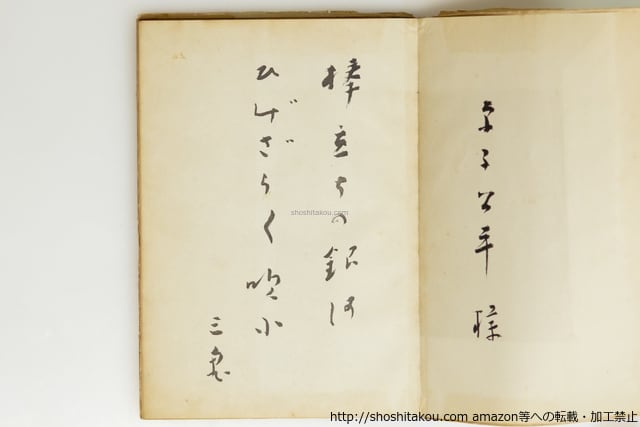 棒立ちの銀河
ひげざら〱
三鬼
子公平様
shoshitakou.com
http://shoshitakou.com amazon等への転載・加工禁止